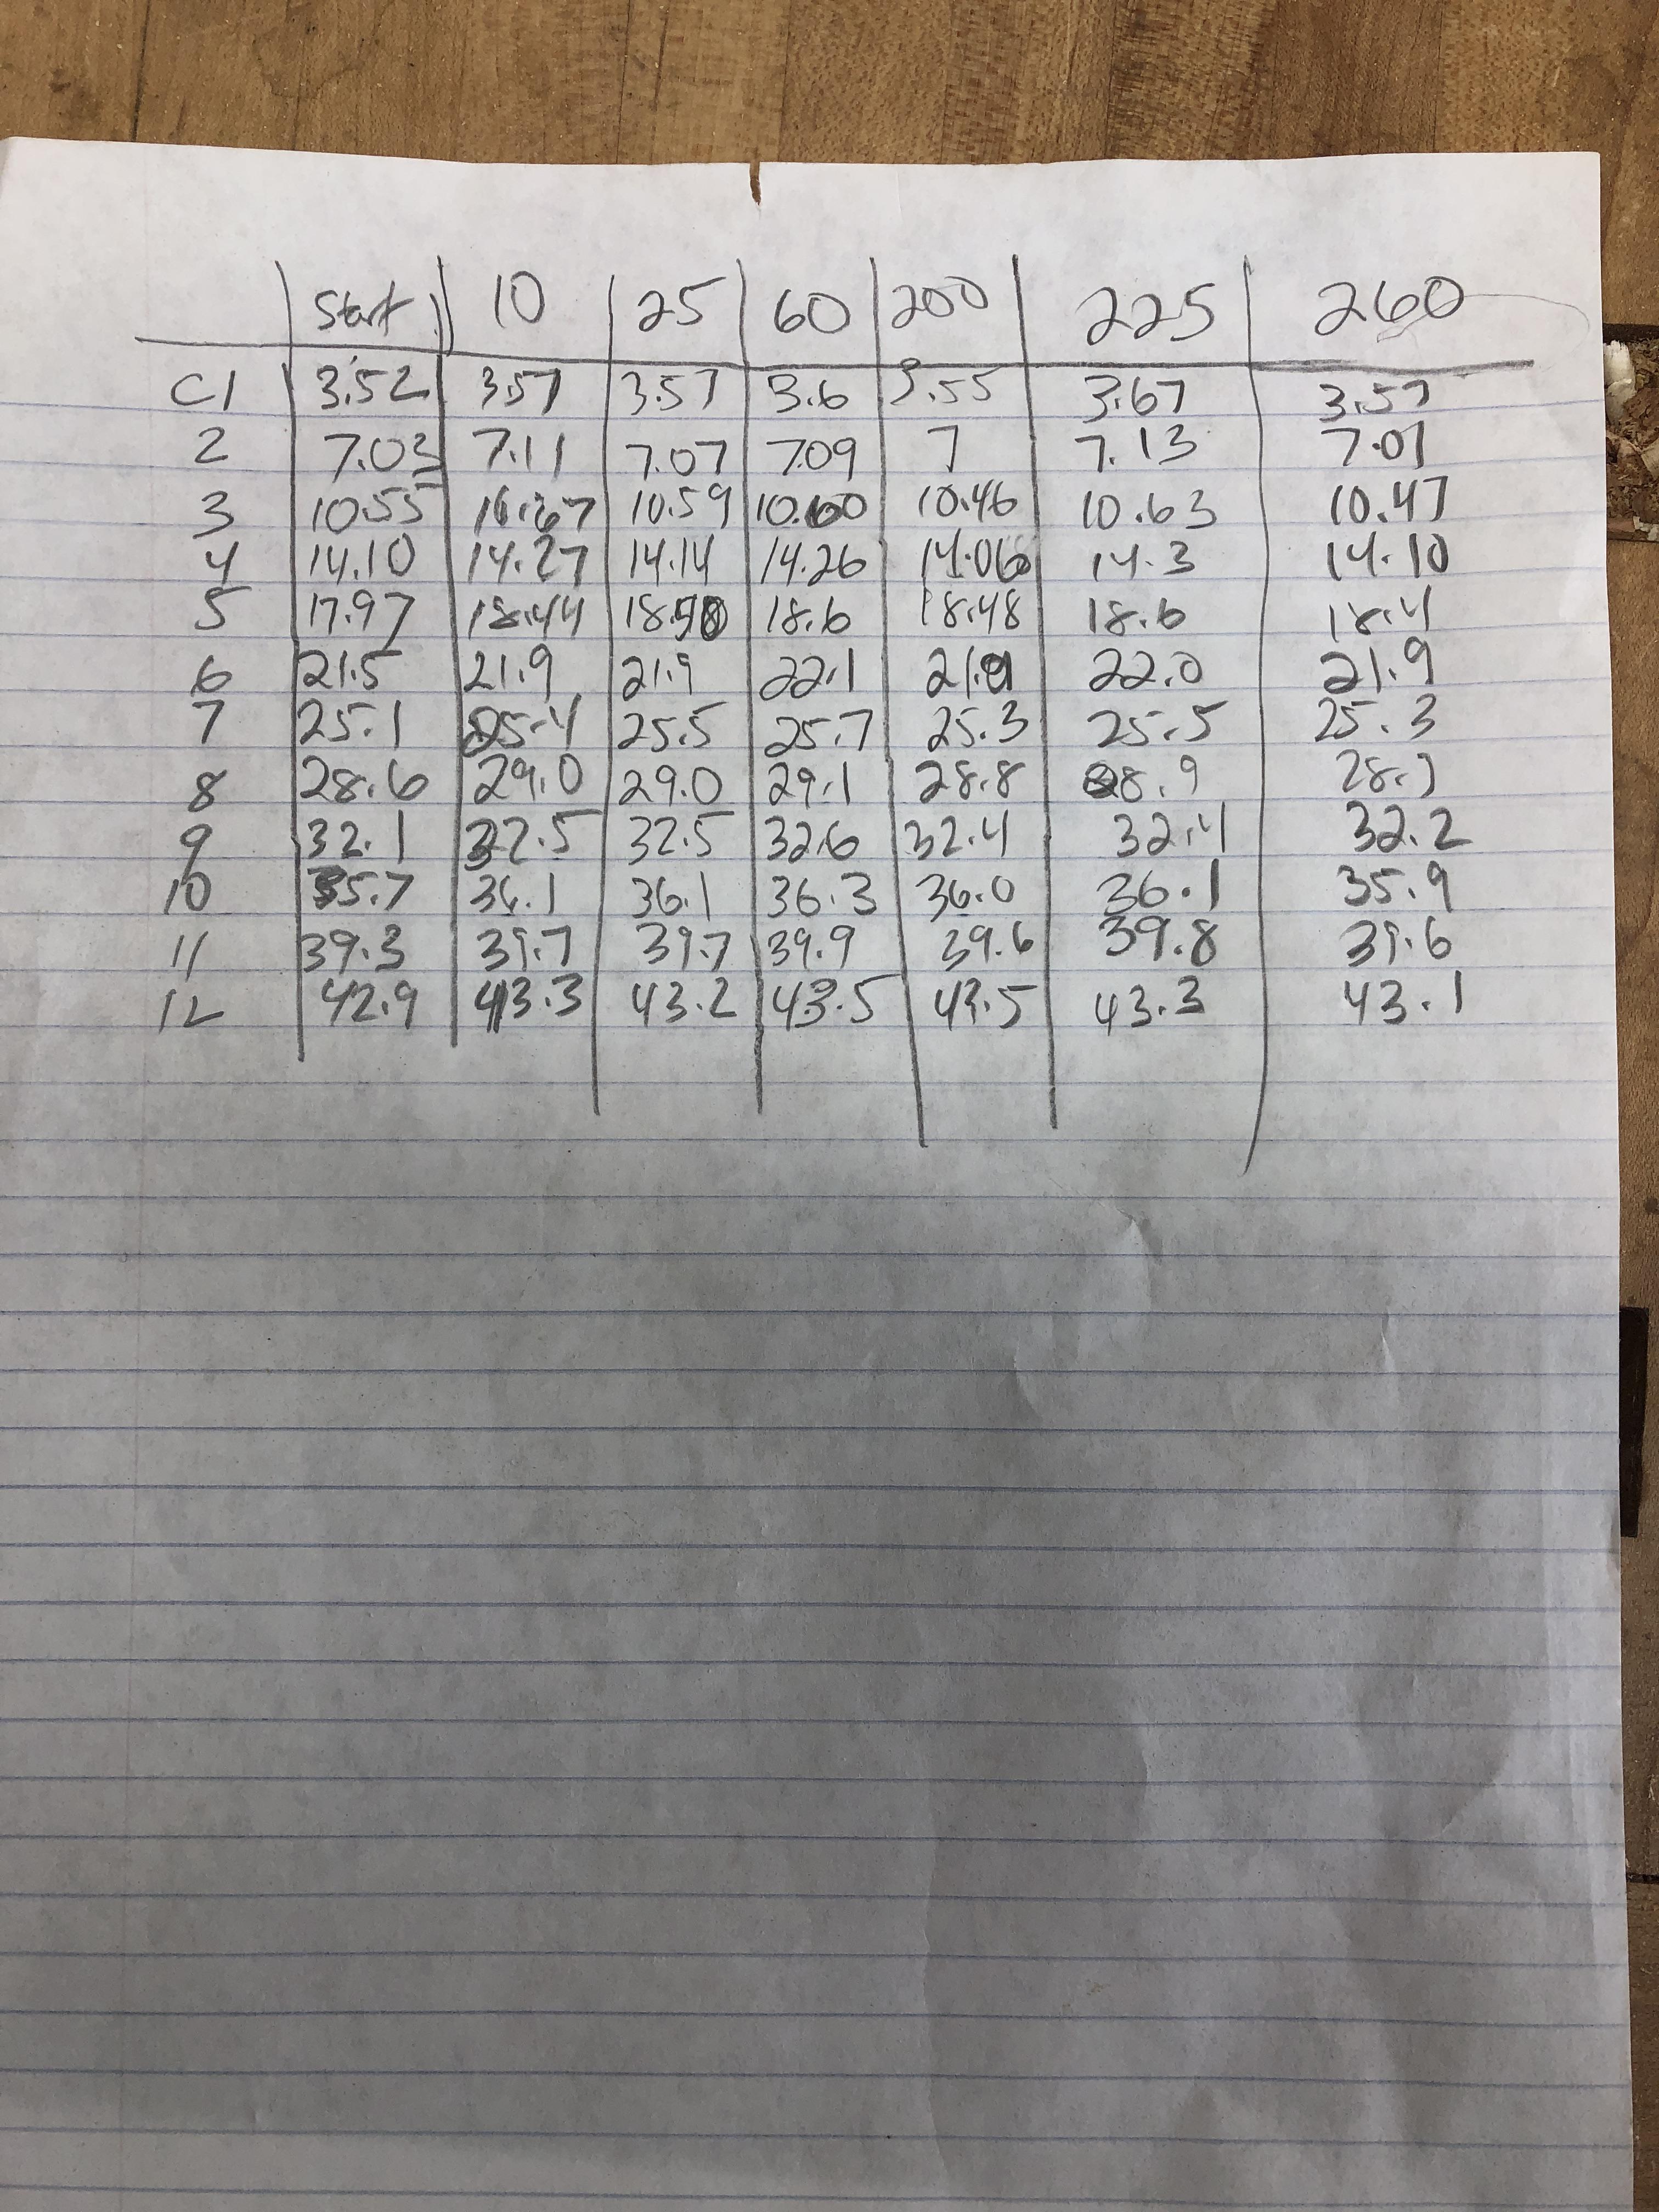 Start 10 25 60 200 225 260
C1 3.52 3.57 3.57 3.6 3.55 3.67 3.57
2 7.03 7.11 7.07 7.09 7 7.13 7.07
3 10.55 10.59 10.60 10.46 10.63 10.47
4 14.10 14.27 14.14 14.26 14.06 14.3 14.10
5 17.97 18.44 18.6 18.48 18.6 18.4
6 21.5 21.9 21.9 22.1 21.9 22.0 21.9
7 25.1 25.4 25.5 25.7 25.3 25.5 25.3
8 28.6 29.0 29.0 29.1 28.8 28.9 28.7
9 32.1 32.5 32.5 32.6 32.4 32.4 32.2
10 35.7 36.1 36.1 36.3 36.0 36.1 35.9
11 39.3 39.7 39.7 39.9 39.6 39.8 39.6
12 42.9 43.3 43.2 43.5 43.5 43.3 43.1